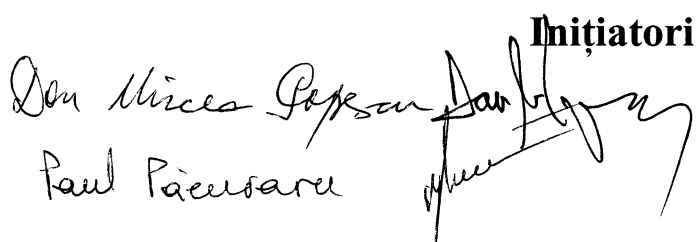 Inițiatori
Dan Mircea Popescu
Paul Păcuraru